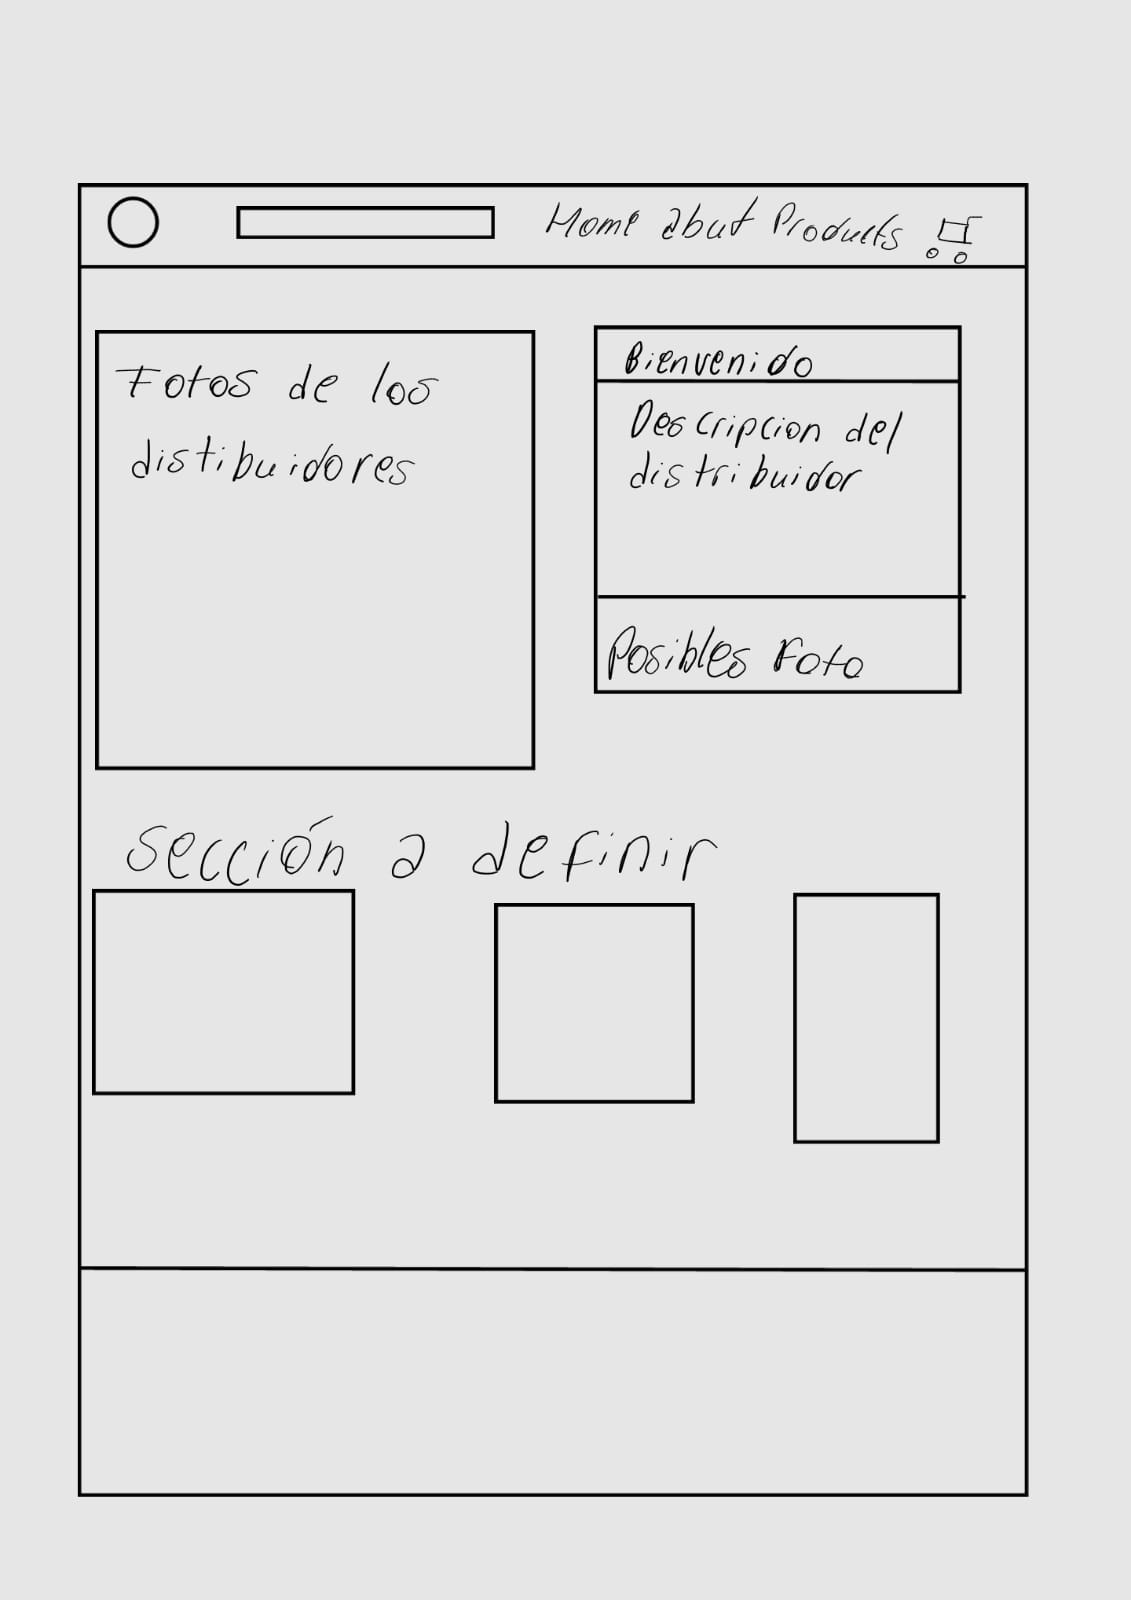 Home about Products
Fotos de los
distibuidores
Bienvenido
Descripcion del
distribuidor
Posibles Foto
Sección a definir